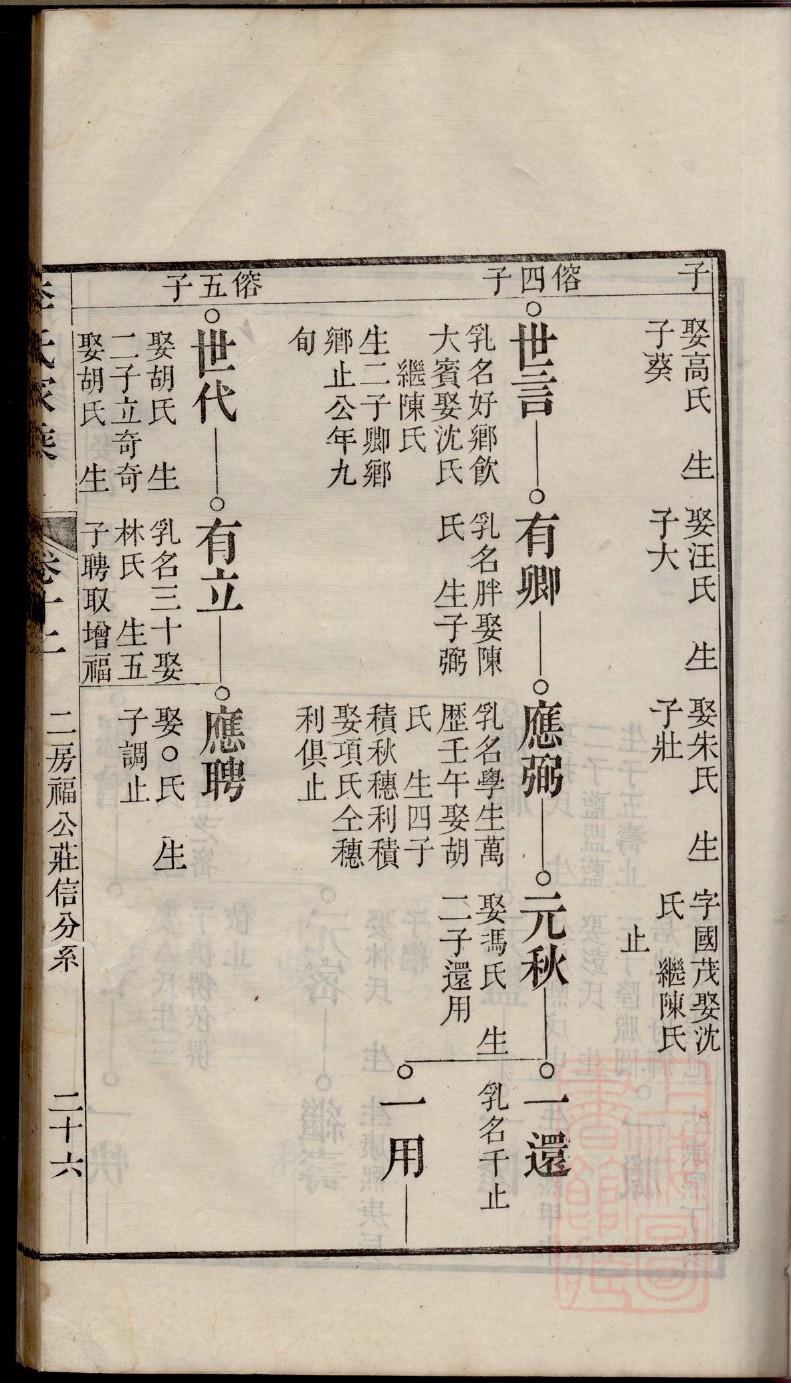 子
娶高氏 生
子葵
娶汪氏 生
子大
娶朱氏 生
子壯
字國茂娶沈
氏 繼陳氏
止
傛四子
世言
乳名好鄉飲
大賓娶沈氏
繼陳氏
生二子卿鄉
鄉止公年九
旬
有卿
乳名胖娶陳
氏 生子弼
應弼
乳名學生萬
歴壬午娶胡
氏 生四子
積秋穗利積
娶項氏仝穗
利俱止
元秋
娶馮氏 生
二子還用
一還
乳名千止
一用
傛五子
世代
娶胡氏 生
二子立奇奇
娶胡氏 生
有立
乳名三十娶
林氏 生五
子聘取增福
應聘
娶○氏 生
子調止
李氏家乗
卷十二
二房福公莊信分系
二十六